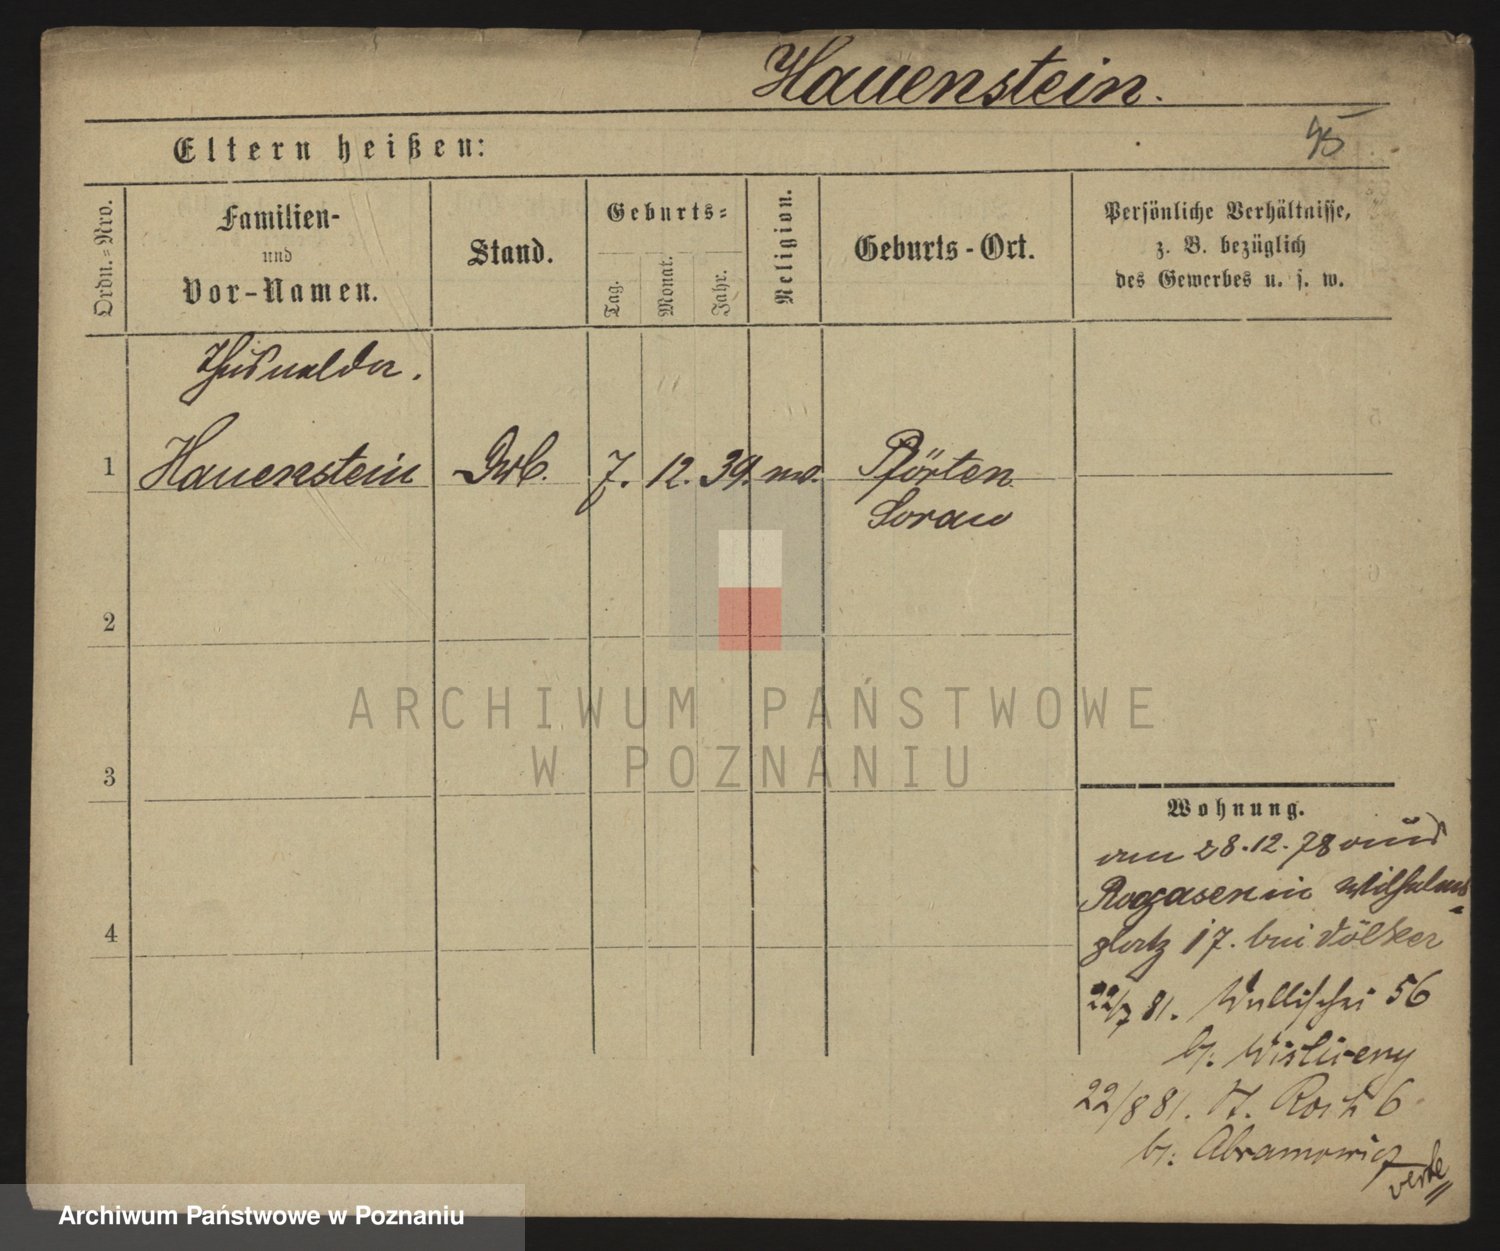 Hauenstein.
95
Eltern heißen:
Ordn.=Nro.
Familien-
und
Vor-Namen.
Stand.
Geburts=
Tag.
Monat.
Jahr.
Religion.
Geburts-Ort.
Persönliche Verhältnisse,
z. B. bezüglich
des Gewerbes u. s. w.
1
Hauenstein
7. 12. 39.
Pförten
Sorau
2
ARCHIWUM PAŃSTWOWE
W POZNANIU
3
Wohnung.
28.12.78 aus
Rogasen in Wilhelms
platz 17. bei Völker
4
22/7 81. Wallischei 56
b/.
22/8 81. St. Roch 6
b/. Abramowicz
verte
Archiwum Państwowe w Poznaniu